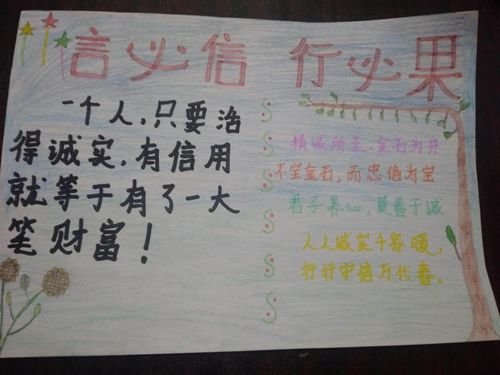 言必信 行必果
一个人，只要治
得诚实，有信用
就等于有了一大
笔财富！
诚所至，金石为开
不宝金石，而忠信为宝
君子养心，莫善于诚
人人诚实千家暖，
行行守信万代春。